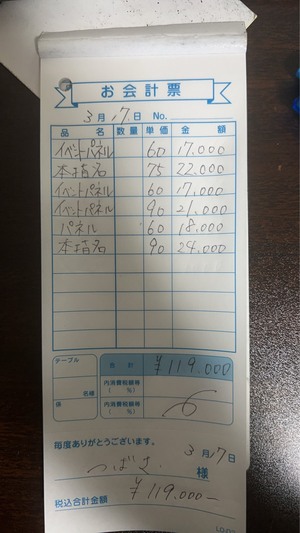 お会計票
3月17日 No.
品名 数量 単価 金額
イベントパネル 60 17.000
本指名 75 22.000
イベントパネル 60 17.000
イベントパネル 90 21.000
パネル 60 18.000
本指名 90 24.000
テーブル
合計 ¥119.000
名様
内消費税額等
( %)
係
内消費税額等
( %)
6
毎度ありがとうございます。
3月17日
つばさ 様
税込合計金額 ¥119.000-